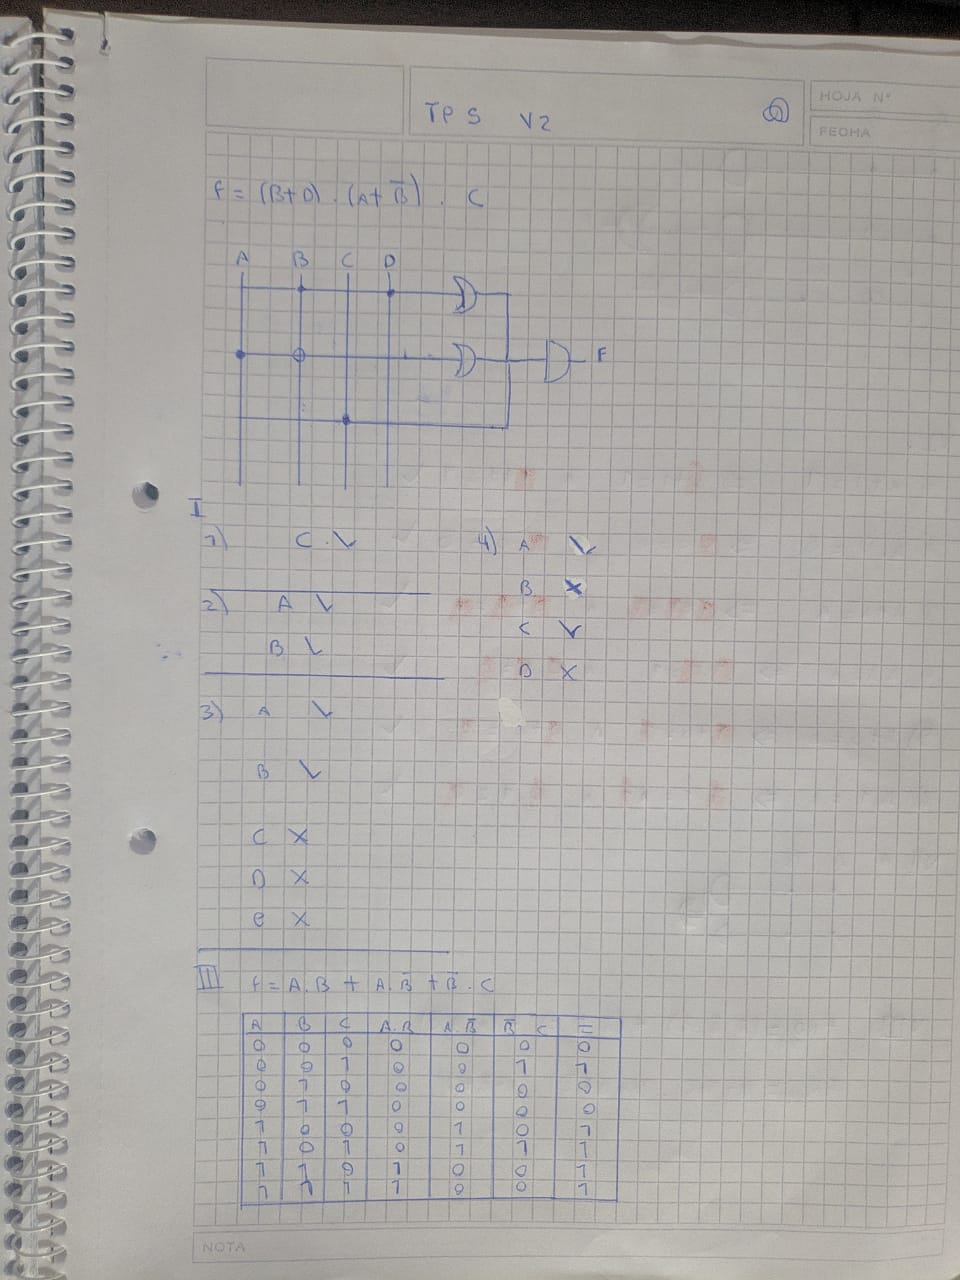 HOJA N°
TP 5 V2
FECHA
f = (B+D) . (A+B̅) . C
A B C D
F
I
1) C. ✓
2) A ✓
B ✓
3) A ✓
B ✓
C X
D X
e X
4) A ✓
B X
C ✓
D X
III f = A.B + A.B̅ + B̅.C
A B C A.B A.B̅ B̅ C =
0 0 0 0 0 0 0
0 0 1 0 0 1 1
0 1 0 0 0 0 0
0 1 1 0 0 0 0
1 0 0 0 1 0 1
1 0 1 0 1 1 1
1 1 0 1 0 0 1
1 1 1 1 0 0 1
NOTA